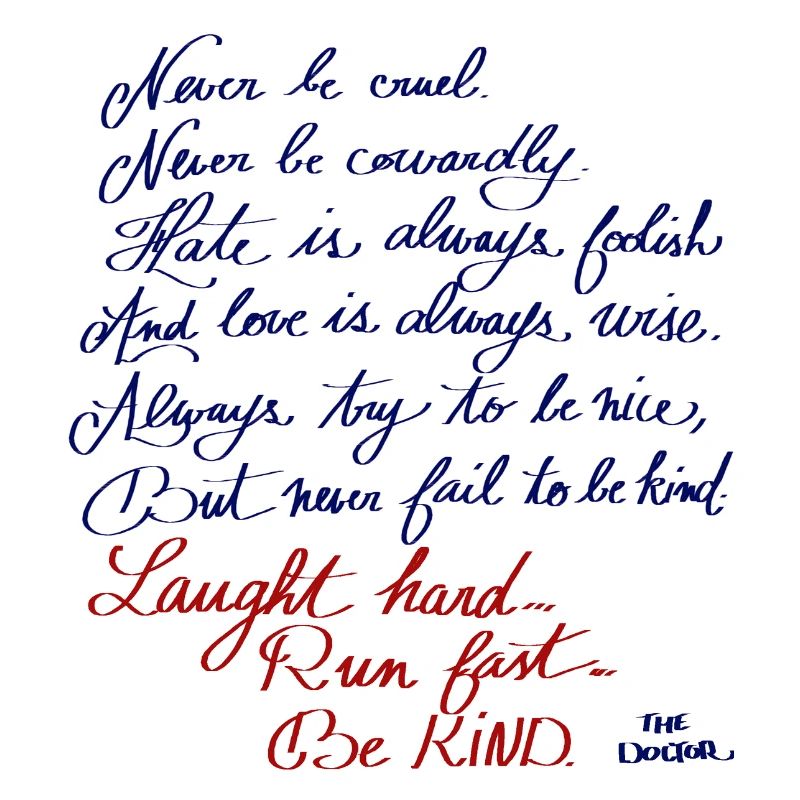 Never be cruel.
Never be cowardly.
Hate is always foolish
And love is always wise.
Always try to be nice,
But never fail to be kind.
Laught hard...
Run fast...
Be KiND.
THE
DOCTOR